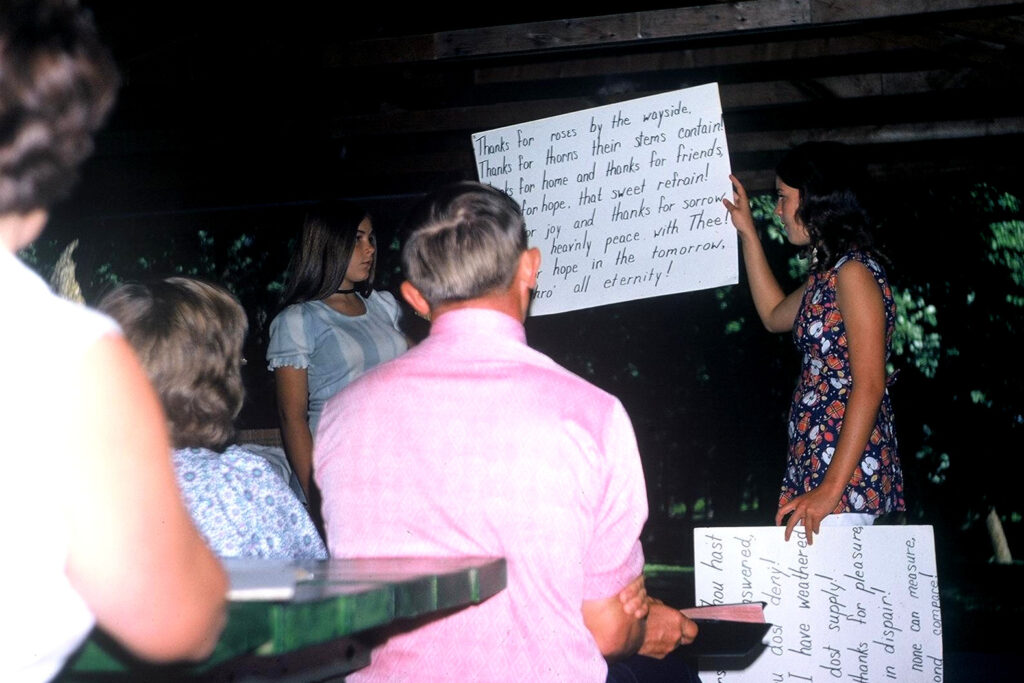 Thanks for roses by the wayside,
Thanks for thorns their stems contain!
for home and thanks for friends,
for hope, that sweet refrain!
joy and thanks for sorrow
heavinly peace with Thee!
hope in the tomorrow,
all eternity!
hast
dost deny!
I have weathered
dost supply!
thanks for pleasure,
in despair!
none can measure,
compare!